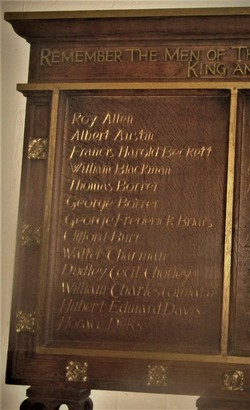 REMEMBER THE MEN OF
KING, AN
Roy Allen
Albert Austin
Francis Harold Beckett
William Blackman
Thomas Borrer
George Borrer
George Frederick
Clifford Burt
Walter Charman
Dudley Cecil
William Charles
Hubert Edward Davis
Horace